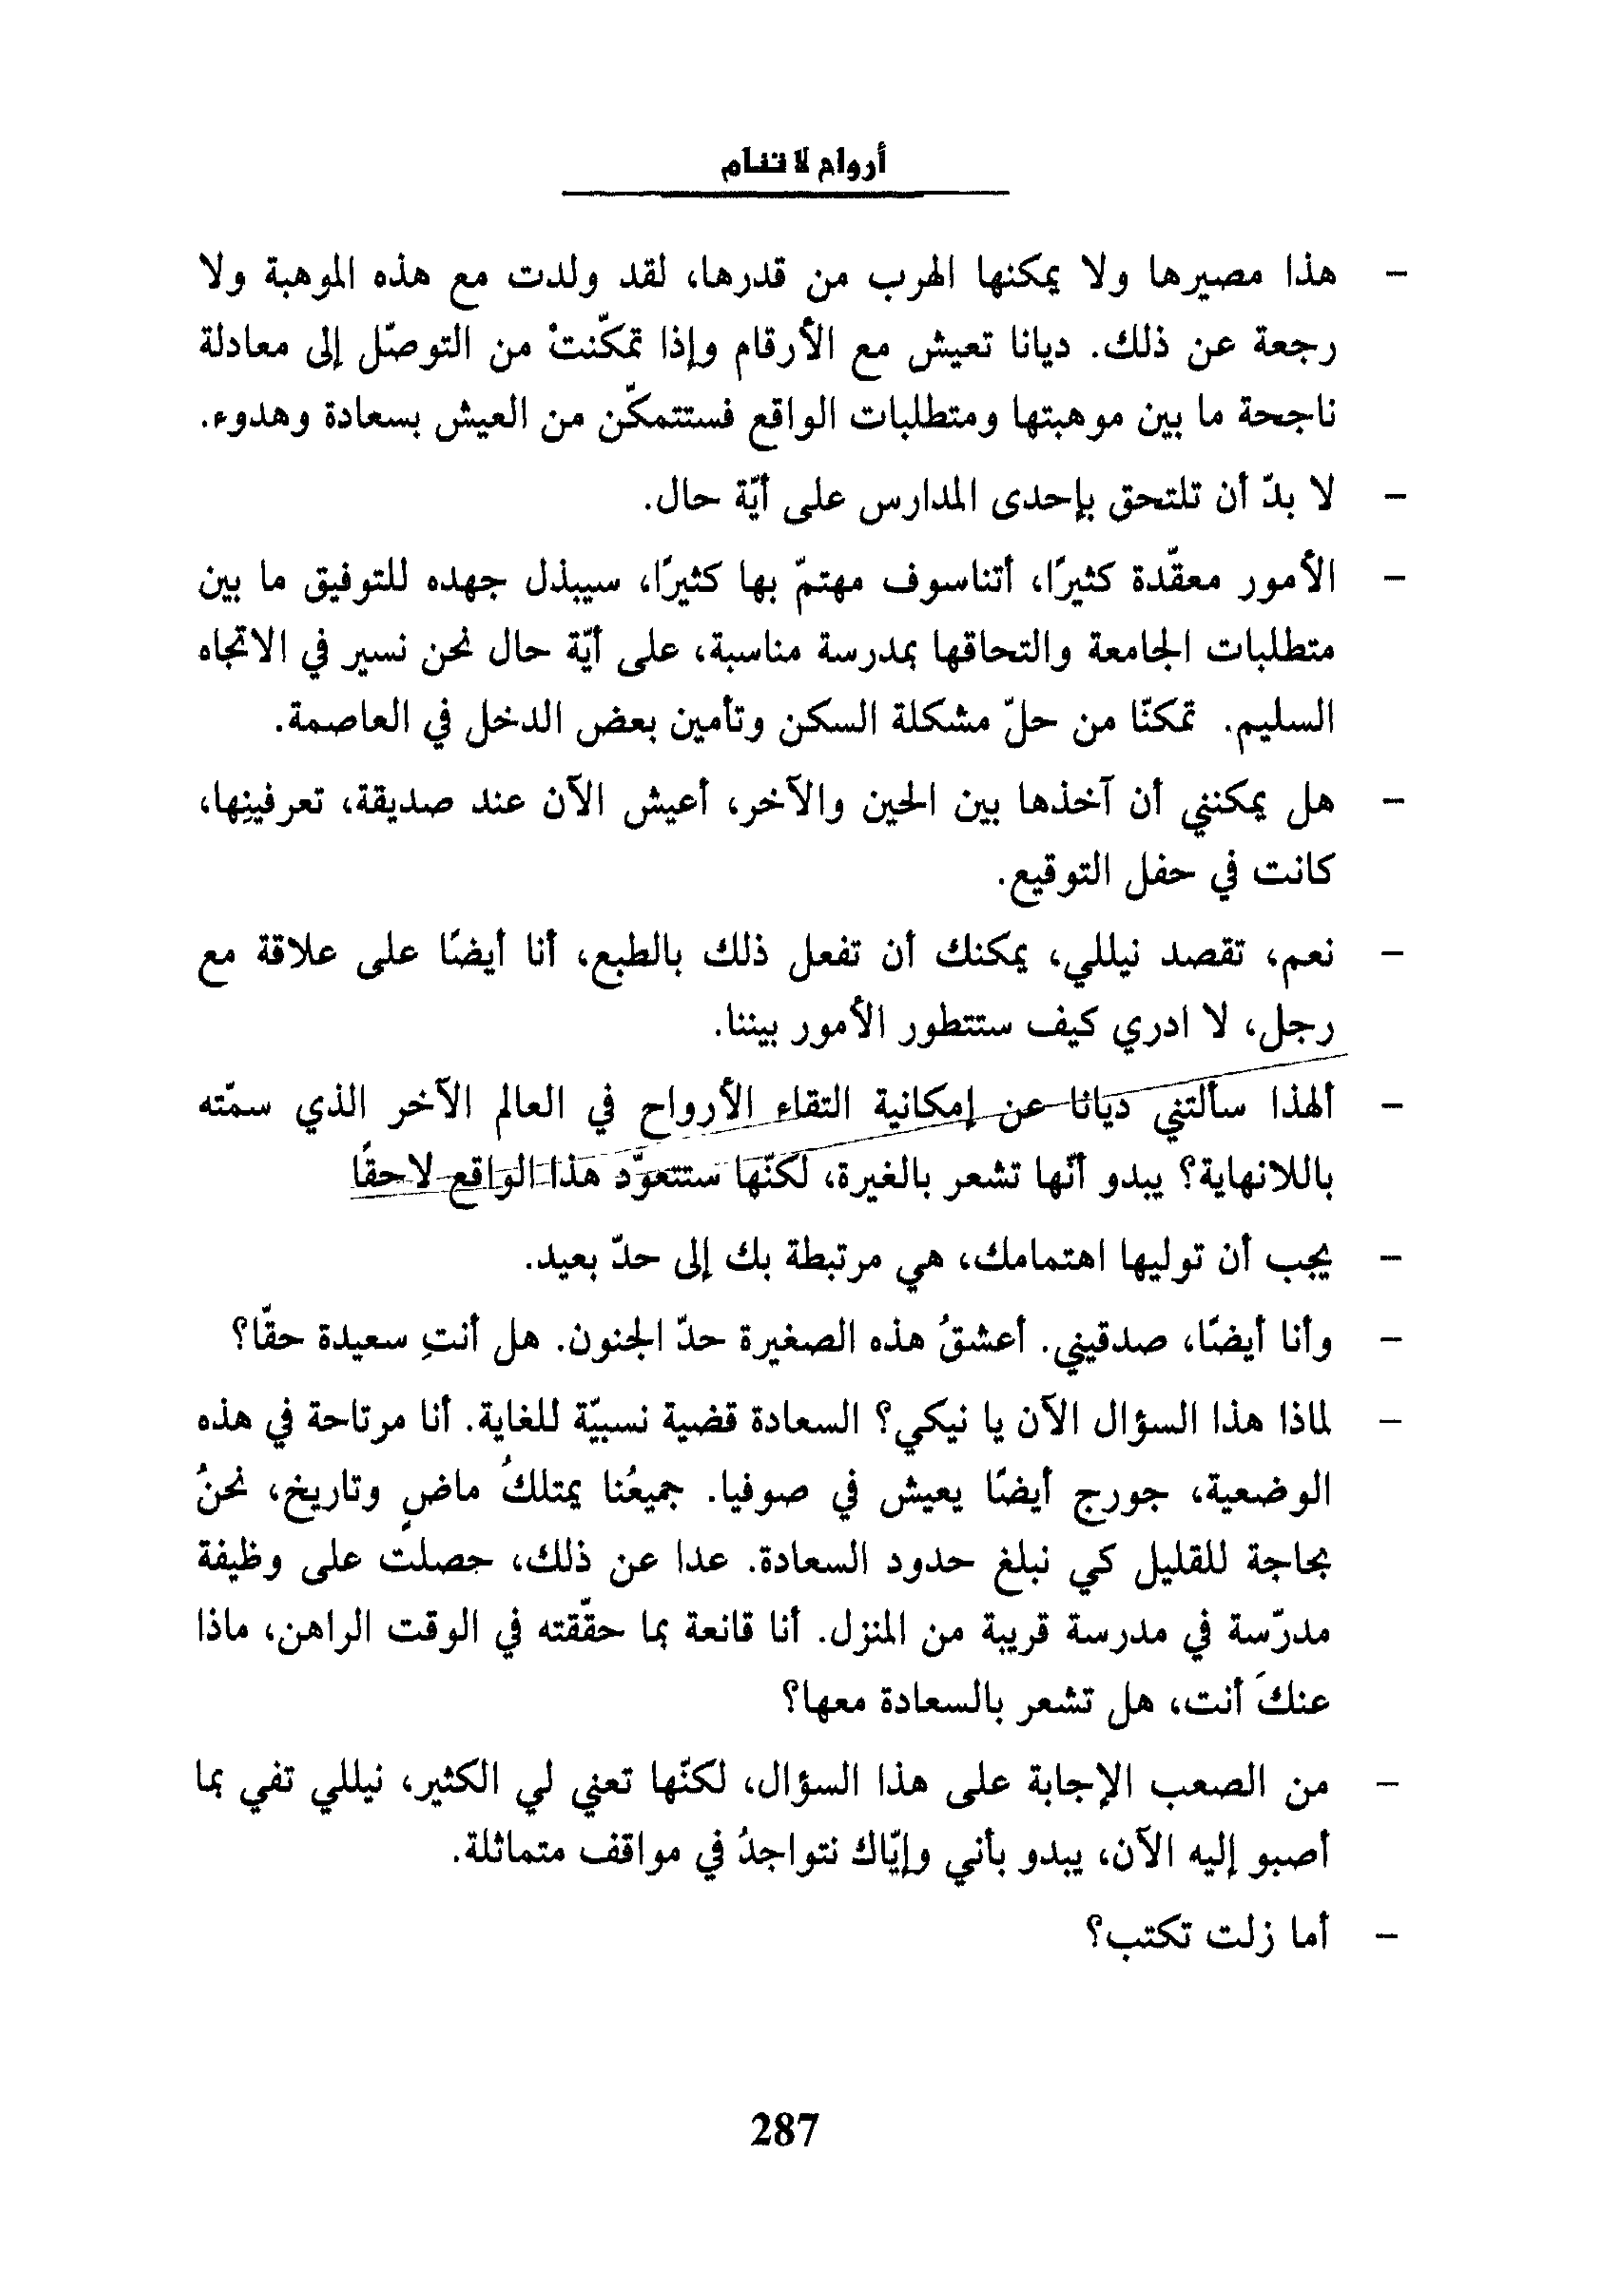 أرواح لا تنام
- هذا مصيرها ولا يمكنها الهرب من قدرها، لقد ولدت مع هذه الموهبة ولا
رجعة عن ذلك. ديانا تعيش مع الأرقام وإذا تمكّنتْ من التوصّل إلى معادلة
ناجحة ما بين موهبتها ومتطلبات الواقع فستتمكّن من العيش بسعادة وهدوء.
- لا بدّ أن تلتحق بإحدى المدارس على أيّة حال.
- الأمور معقّدة كثيرًا، أتناسوف مهتمّ بها كثيرًا، سيبذل جهده للتوفيق ما بين
متطلبات الجامعة والتحاقها بمدرسة مناسبة، على أيّة حال نحن نسير في الاتجاه
السليم. تمكنّا من حلّ مشكلة السكن وتأمين بعض الدخل في العاصمة.
- هل يمكنني أن آخذها بين الحين والآخر، أعيش الآن عند صديقة، تعرفينِها،
كانت في حفل التوقيع.
- نعم، تقصد نيللي، يمكنك أن تفعل ذلك بالطبع، أنا أيضًا على علاقة مع
رجل، لا ادري كيف ستتطور الأمور بيننا.
- ألهذا سألتني ديانا عن إمكانية التقاء الأرواح في العالم الآخر الذي سمّته
باللانهاية؟ يبدو أنّها تشعر بالغيرة، لكنّها ستتعوّد هذا الواقع لاحقًا
- يجب أن توليها اهتمامك، هي مرتبطة بك إلى حدّ بعيد.
- وأنا أيضًا، صدقيني. أعشقُ هذه الصغيرة حدّ الجنون. هل أنتِ سعيدة حقّا؟
- لماذا هذا السؤال الآن يا نيكي؟ السعادة قضية نسبيّة للغاية. أنا مرتاحة في هذه
الوضعية، جورج أيضًا يعيش في صوفيا. جميعُنا يمتلكُ ماضٍ وتاريخ، نحنُ
بحاجة للقليل كي نبلغ حدود السعادة. عدا عن ذلك، حصلت على وظيفة
مدرّسة في مدرسة قريبة من المنزل. أنا قانعة بما حقّقته في الوقت الراهن، ماذا
عنكَ أنت، هل تشعر بالسعادة معها؟
- من الصعب الإجابة على هذا السؤال، لكنّها تعني لي الكثير، نيللي تفي بما
أصبو إليه الآن، يبدو بأني وإيّاك نتواجدُ في مواقف متماثلة.
- أما زلت تكتب؟
287